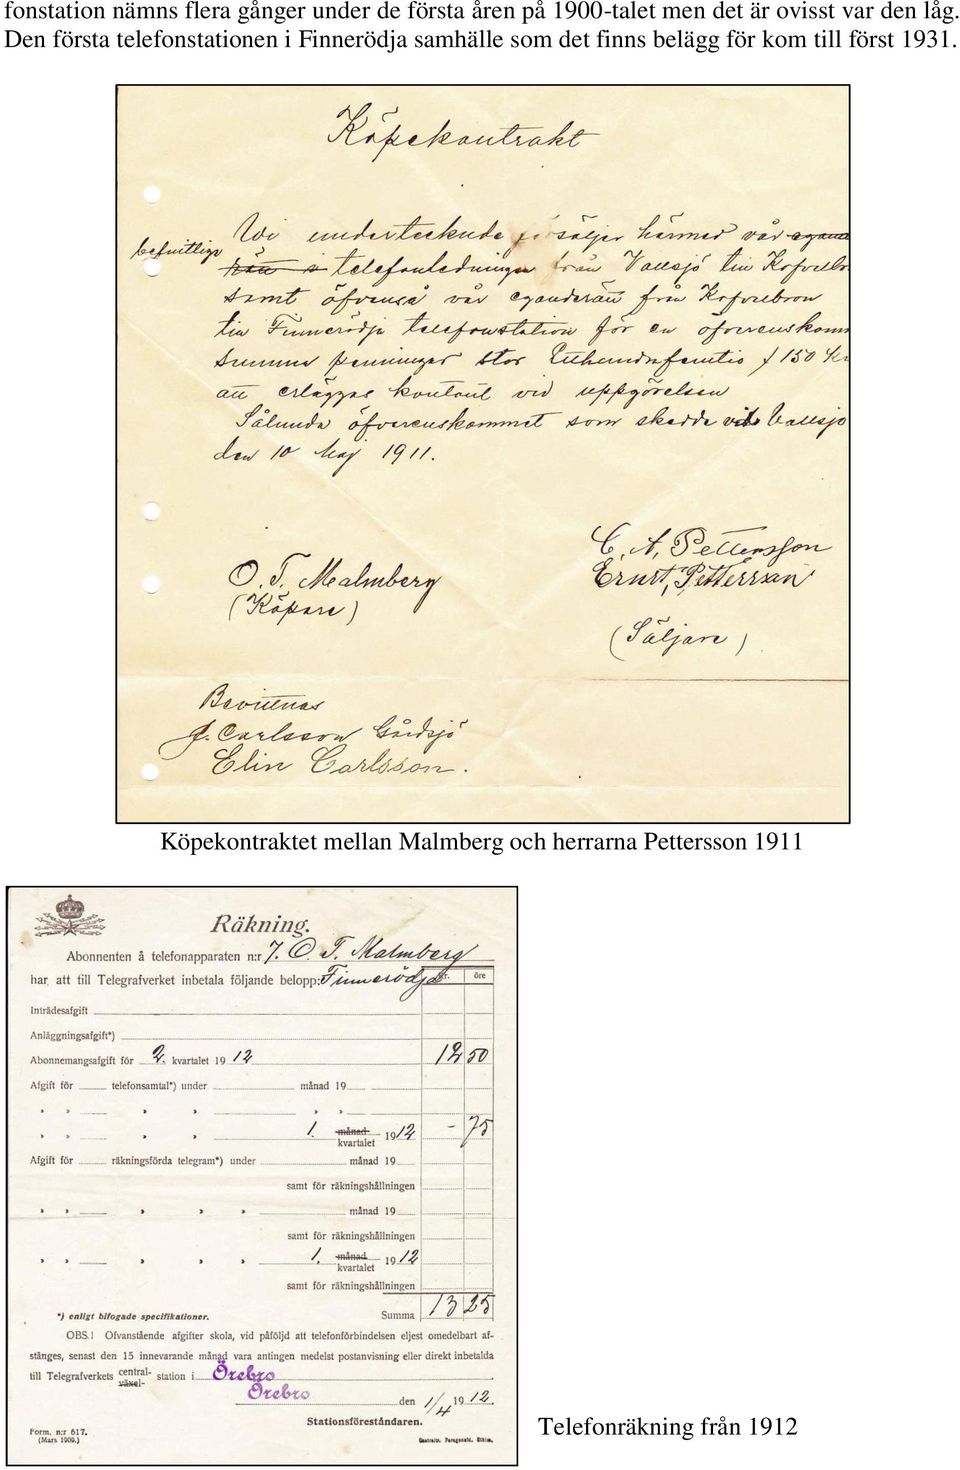 fonstation nämns flera gånger under de första åren på 1900-talet men det är ovisst var den låg.
Den första telefonstationen i Finnerödja samhälle som det finns belägg för kom till först 1931.
Köpekontrakt
Wi undertecknade försäljer härmed vår egande
befintliga rätt i telefonledningen från Vallsjö till Korforsbr
samt öfvenså vår eganderätt från Korforsbron
till Finnerödja telefonstation för en öfverenskomm
Summa penningar stor Etthundrafemtio / 150 Kr
att erläggas kontant vid uppgörelsen
Sålunda öfverenskommet som skedde vid Vallsjö
den 10 Maj 1911.
C. A. Pettersson
O. T. Malmberg Ernst Pettersson
(Köpare)
(Säljare)
Bevittnas
J. Carlsson Gårdsjö
Elin Carlsson.
Köpekontraktet mellan Malmberg och herrarna Pettersson 1911
Räkning.
Abonnenten å telefonapparaten n:r 7. O. T. Malmberg
har att till Telegrafverket inbetala följande belopp: Finnerödja kr. öre
Inträdesafgift
Anläggningsafgift*)
Abonnemangsafgift för 2. kvartalet 19 12 12 50
Afgift för telefonsamtal*) under månad 19
» » » » » »
» » » » 1. månad kvartalet 1912 - 75
Afgift för räkningsförda telegram*) under månad 19
samt för räkningshållningen
» » » » » månad 19
samt för räkningshållningen
» » » » » 1. månad kvartalet 1912
samt för räkningshållningen
*) enligt bifogade specifikationer. Summa 13 25
OBS.! Ofvanstående afgifter skola, vid påföljd att telefonförbindelsen eljest omedelbart af-
stänges, senast den 15 innevarande månad vara antingen medelst postanvisning eller direkt inbetalda
till Telegrafverkets central- växel- station i Örebro
Örebro
den 1/4 1912.
Stationsföreståndaren.
Form. n:r 617.
(Mars 1909.)
Telefonräkning från 1912